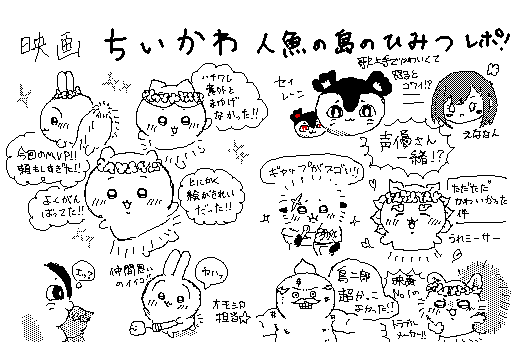 映画 ちいかわ 人魚の島のひみつ レポ!!
ハチワレ
意外と
まゆげ
なかった!!
セイ
レーン
歌上手でかわいくて
怒ると
コワイ!?
声優さん
一緒!?
えななん
今回のMVP!!
頭もしすぎた!!
よくがん
ばってた!!
とにかく
絵がきれい
だった!!
ギャップがスゴい!!
ただただ
かわいかった
件
うれミーサー
仲間思い
のイイコ
ヤハッ
オモシロ
担当☆
島二郎
超かっこ
よかった!!
映画
No.1の
トラブル
メーカー!!